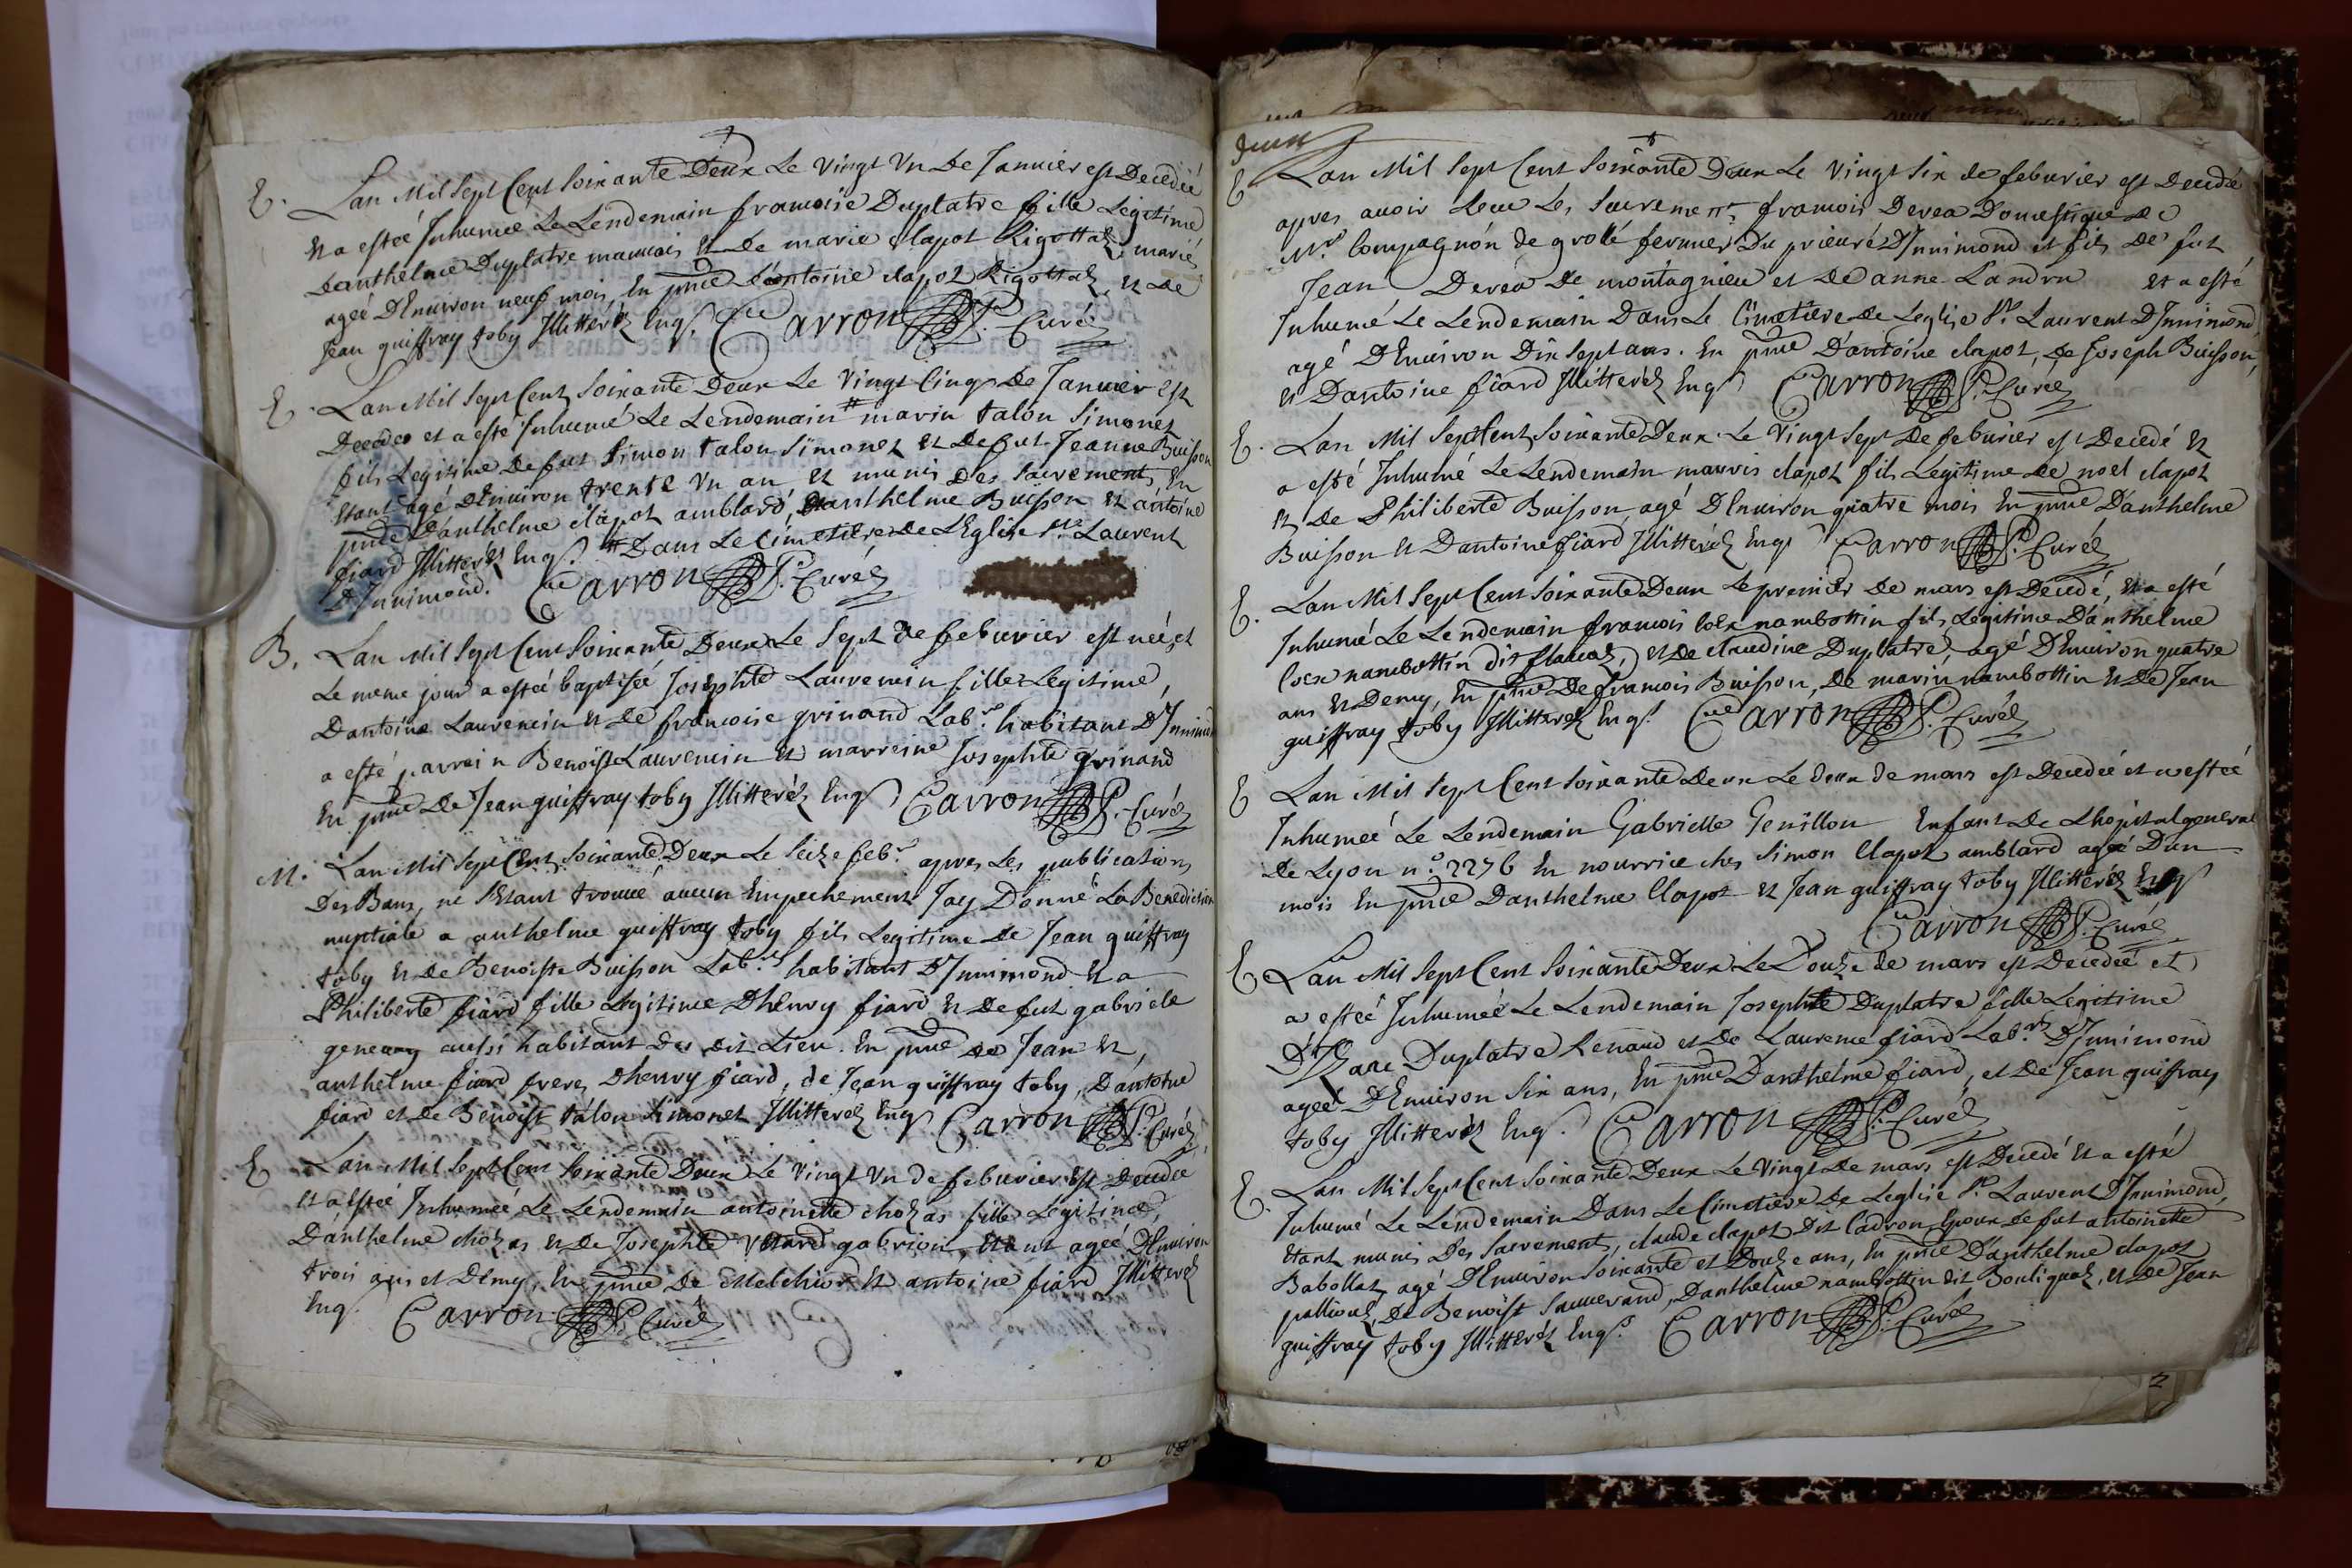 E. Lan Mil Sept Cent Soixante Deux Le Vingt Vn De Januier est Decedée
Et a estée Inhumée Le Lendemain francoise Duplatre fille Legitime
Danthelme Duplatre mauuais Et De marie Clapot Rigottat, mariés
agée DEnuiron neuf mois, En pnce dantoine clapot Rigottat, Et De
Jean guiffray toby Illitterés Enqs. Carron P. Curé
E. Lan Mil Sept Cent Soixante Deux Le Vingt Cinq De Januier Est
Decedes et a esté Inhumé Le Lendemain # marin talon Simonet
fils Legitime De fut Simon talon Simonet Et De fut Jeanne Buisson
Etant agé DEnuiron trente Vn an Et munis Des Sacrements En
pnce Danthelme clapot amblard, Danthelme Buisson Et antoine
fiard Illitterés Enqs. # Dans Le Cimetiere De LEglise St. Laurent
DInnimond. Carron P. Curé
B. Lan Mil Sept Cent Soixante Deux Le Sept De feburier est née et
Le meme jour a estée baptisée Josephte Laurencin fille Legitime
Dantoine Laurencin Et De francoise grinand Labrs. habitant DInnimond
a esté parrein Benoist Laurencin Et marreine Josephte grinand
En pnce De Jean guiffray toby Illitterés Enqs Carron P. Curé
M. Lan Mil Sept Cent Soixante Deux Le Seize febr. apres Les publications
Des Bans, ne sEtant trouué aucun Empechement Jay Donné La Benediction
nuptiale a anthelme guiffray toby fils Legitime De Jean guiffray
toby Et De Benoiste Buisson Labrs. habitant DInnimond Et a
Philiberte fiard fille Legitime Dhenry fiard Et De fut gabriele
geneuay aussi habitant Des dit Lieu. En pnce De Jean Et
anthelme fiard freres Dhenry fiard, de Jean guiffray toby, Dantoine
fiard et de Benoist talon Simonet Illitterés Enqs Carron P. Curé
E Lan Mil Sept Cent Soixante Deux Le Vingt Vn de feburier Est Decedée
Et a Estée Inhumée Le Lendemain antoinette chozas fille Legitime
Danthelme chozas Et De Josephte gabrion, Etant agée DEnuiron
trois ans et Demy, En pnce De Melchior Et antoine fiard Illitterés
Enqs. Carron P. Curé
deux
E Lan Mil Sept Cent Soixante Deux Le Vingt Six de feburier est Decedé
apres auoir Receu Les Sacrements francois Derea Domestique De
Mr. Compagnon de grolé fermier Du prieuré DInnimond et fils De fut
Jean Derea De montagnieu et De anne Landru Et a esté
Inhumé Le Lendemain Dans Le Cimetiere De Leglise St. Laurent DInnimond,
agé DEnuiron Dix Sept ans. En pnce Dantoine clapot, De Joseph Buisson,
Et Dantoine fiard Illitterés Enqs Carron P. Curé
E. Lan Mil Sept Cent Soixante Deux Le Vingt Sept De feburier est Decedé Et
a esté Inhumé Le Lendemain mauris clapot fils Legitime De noel clapot
Et De Philiberte Buisson, agé DEnuiron quatre mois En pnce Danthelme
Buisson Et Dantoine fiard Illitterés Enqs Carron P. Curé
E. Lan Mil Sept Cent Soixante Deux Le premier De mars est Decedé, Et a esté
Inhumé Le Lendemain francois Coex nambottin fils Legitime Danthelme
Coex nambottin dit flauat, Et De claudine Duplatre, agé DEnuiron quatre
ans Et Demy, En pnce De francois Buisson, De marin nambottin Et De Jean
guiffray toby Illitterés Enqs. Carron P. Curé
E Lan Mil Sept Cent Soixante Deux Le deux de mars est Decedée et a estée
Inhumée Le Lendemain Gabrielle Genillon Enfant De Lhopital general
de Lyon n°. 2276 En nourrice ches Simon Clapot amblard agée Dun
mois En pnce Danthelme Clapot Et Jean guiffray toby Illitterés Enqs
Carron P. Curé
E Lan Mil Sept Cent Soixante Deux Le Douze de mars est Decedée et
a estée Inhumée Le Lendemain Josephte Duplatre fille Legitime
DIsaac Duplatre Renaud et De Laurence fiard Labrs. DInnimond
agée DEnuiron Six ans, En pnce Danthelme fiard, et De Jean guiffray
toby Illitterés Enqs. Carron P. Curé
E. Lan Mil Sept Cent Soixante Deux Le Vingt De mars est Decedé Et a esté
Inhumé Le Lendemain Dans Le Cimetiere De Leglise St. Laurent DInnimond,
Etant munis Des Sacrements, claude clapot Dit Cadron, Epoux De fut antoinette
Babollat, agé DEnuiron Soixante et Douze ans, En pnce Danthelme clapot
pallioud, De Benoist Sauuerand, Danthelme nambottin dit Bouliquat, Et De Jean
guiffray toby Illitterés Enqs. Carron P. Curé
2